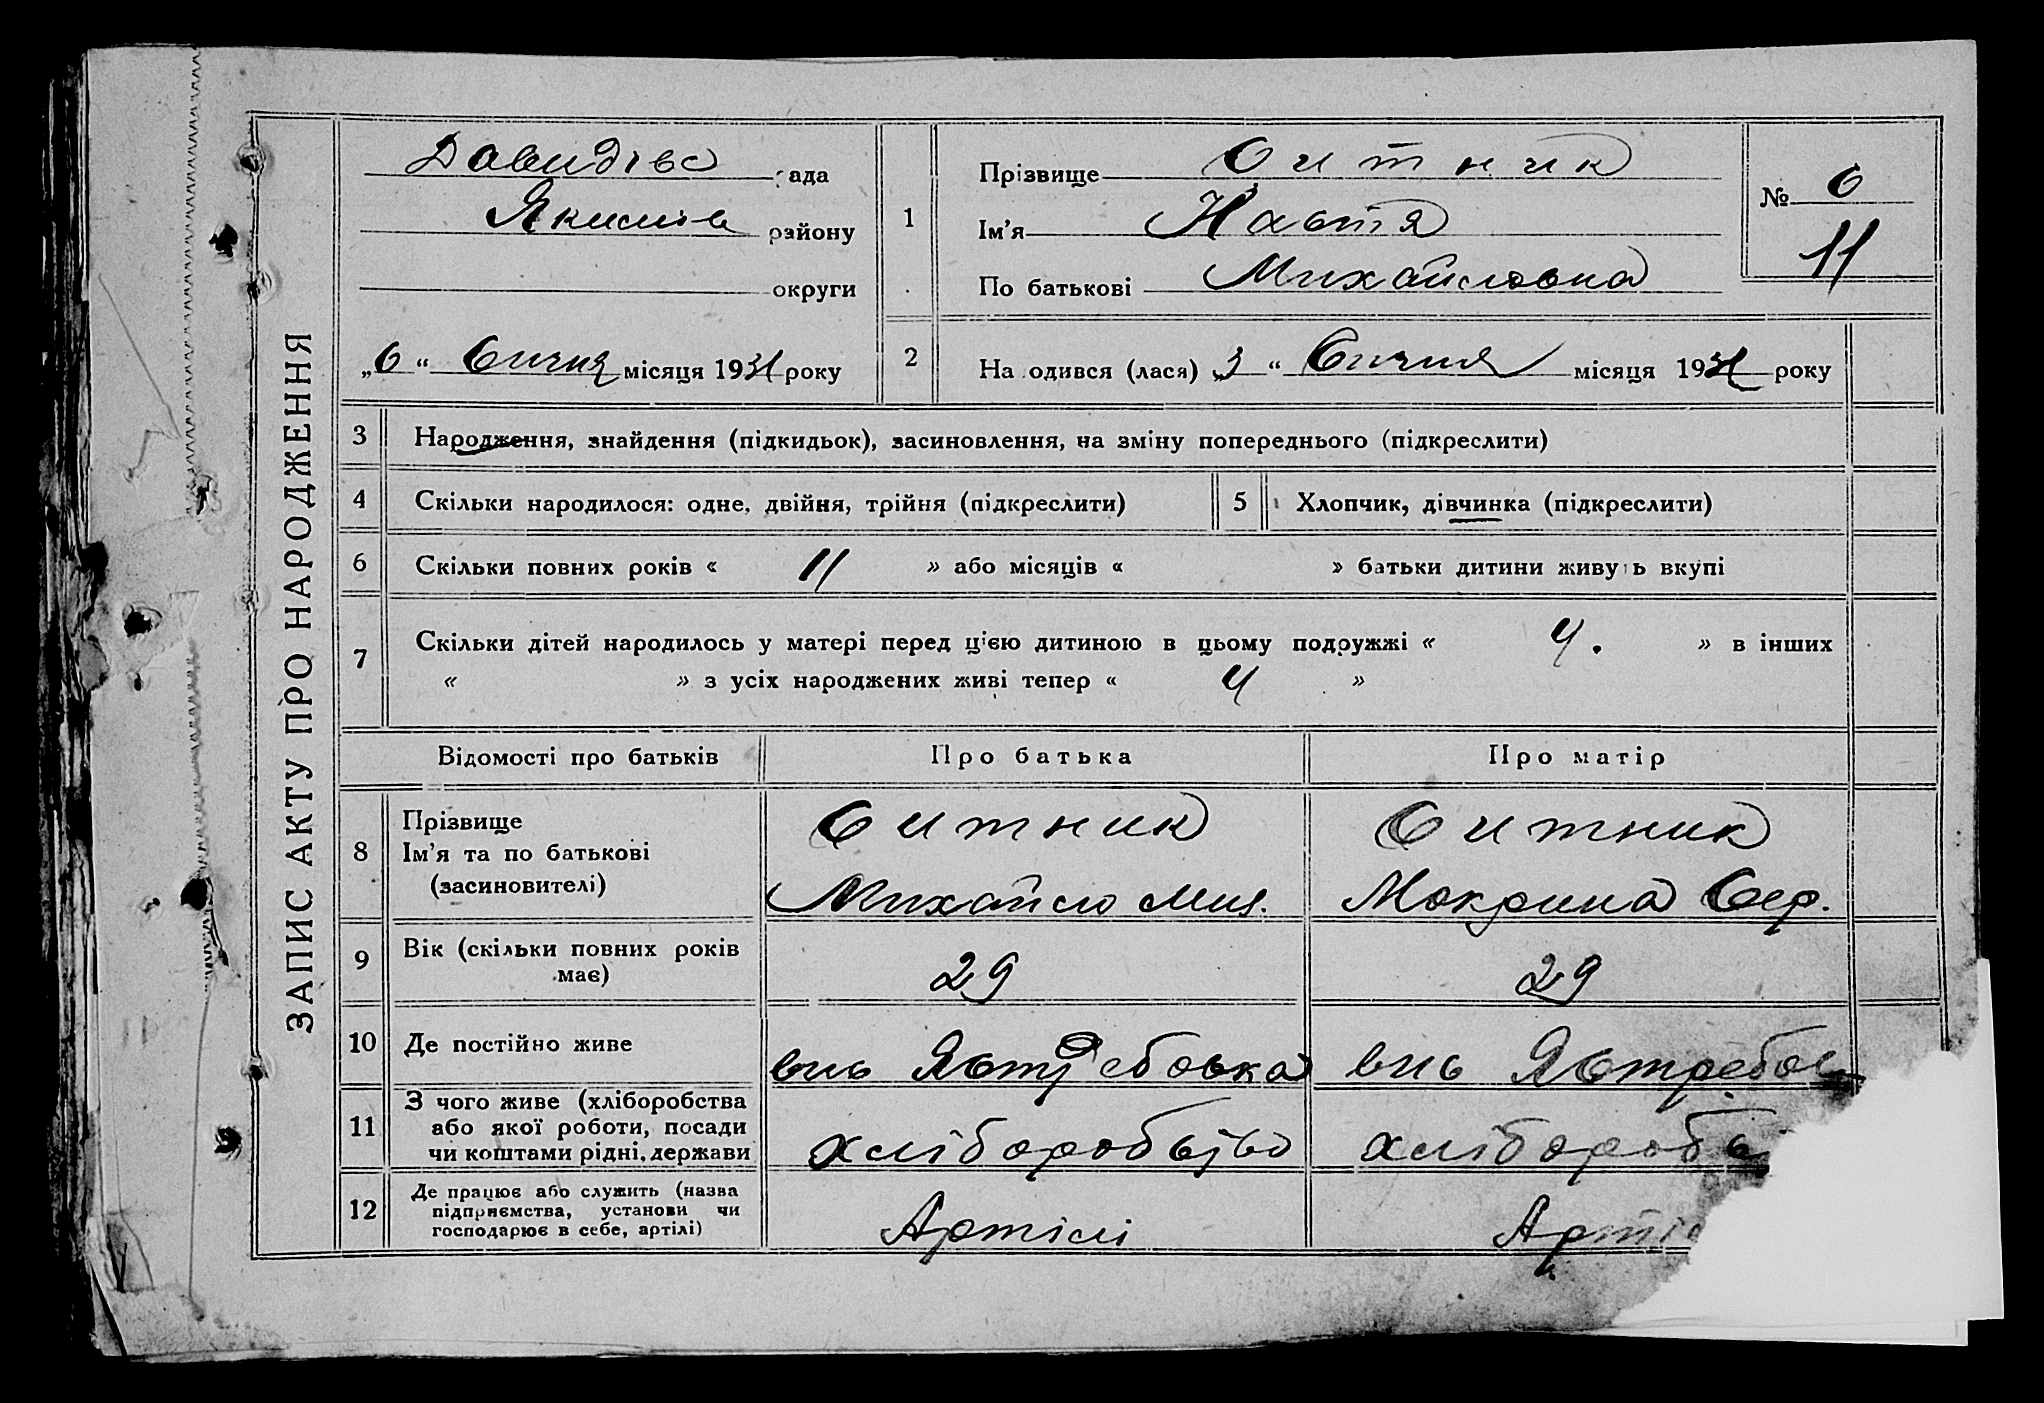 ЗАПИС АКТУ ПРО НАРОДЖЕННЯ
Давидівс рада
Якимів району
округи
„6“ Січня місяця 1931 року
1
Прізвище Ситник
Ім'я Настя
По батькові Михайловна
№ 6
11
2
Народився (лася) „3“ Січня місяця 1931 року
3 Народження, знайдення (підкидьок), засиновлення, на зміну попереднього (підкреслити)
4 Скільки народилося: одне, двійня, трійня (підкреслити) 5 Хлопчик, дівчинка (підкреслити)
6 Скільки повних років « 11 » або місяців « » батьки дитини живуть вкупі
7 Скільки дітей народилось у матері перед цією дитиною в цьому подружжі « 4. » в інших
« » з усіх народжених живі тепер « 4 »
Відомості про батьків Про батька Про матір
8 Прізвище
Ім'я та по батькові
(засиновителі)
Ситник
Михайло
Ситник
Мокрина Сер.
9 Вік (скільки повних років
має)
29
29
10 Де постійно живе
Ястребовка
Ястребов
11 З чого живе (хліборобства
або якої роботи, посади
чи коштами рідні, держави
хліборобство
хліборобс
12 Де працює або служить (назва
підприємства, установи чи
господарює в себе, артілі)
Артілі
Артіл